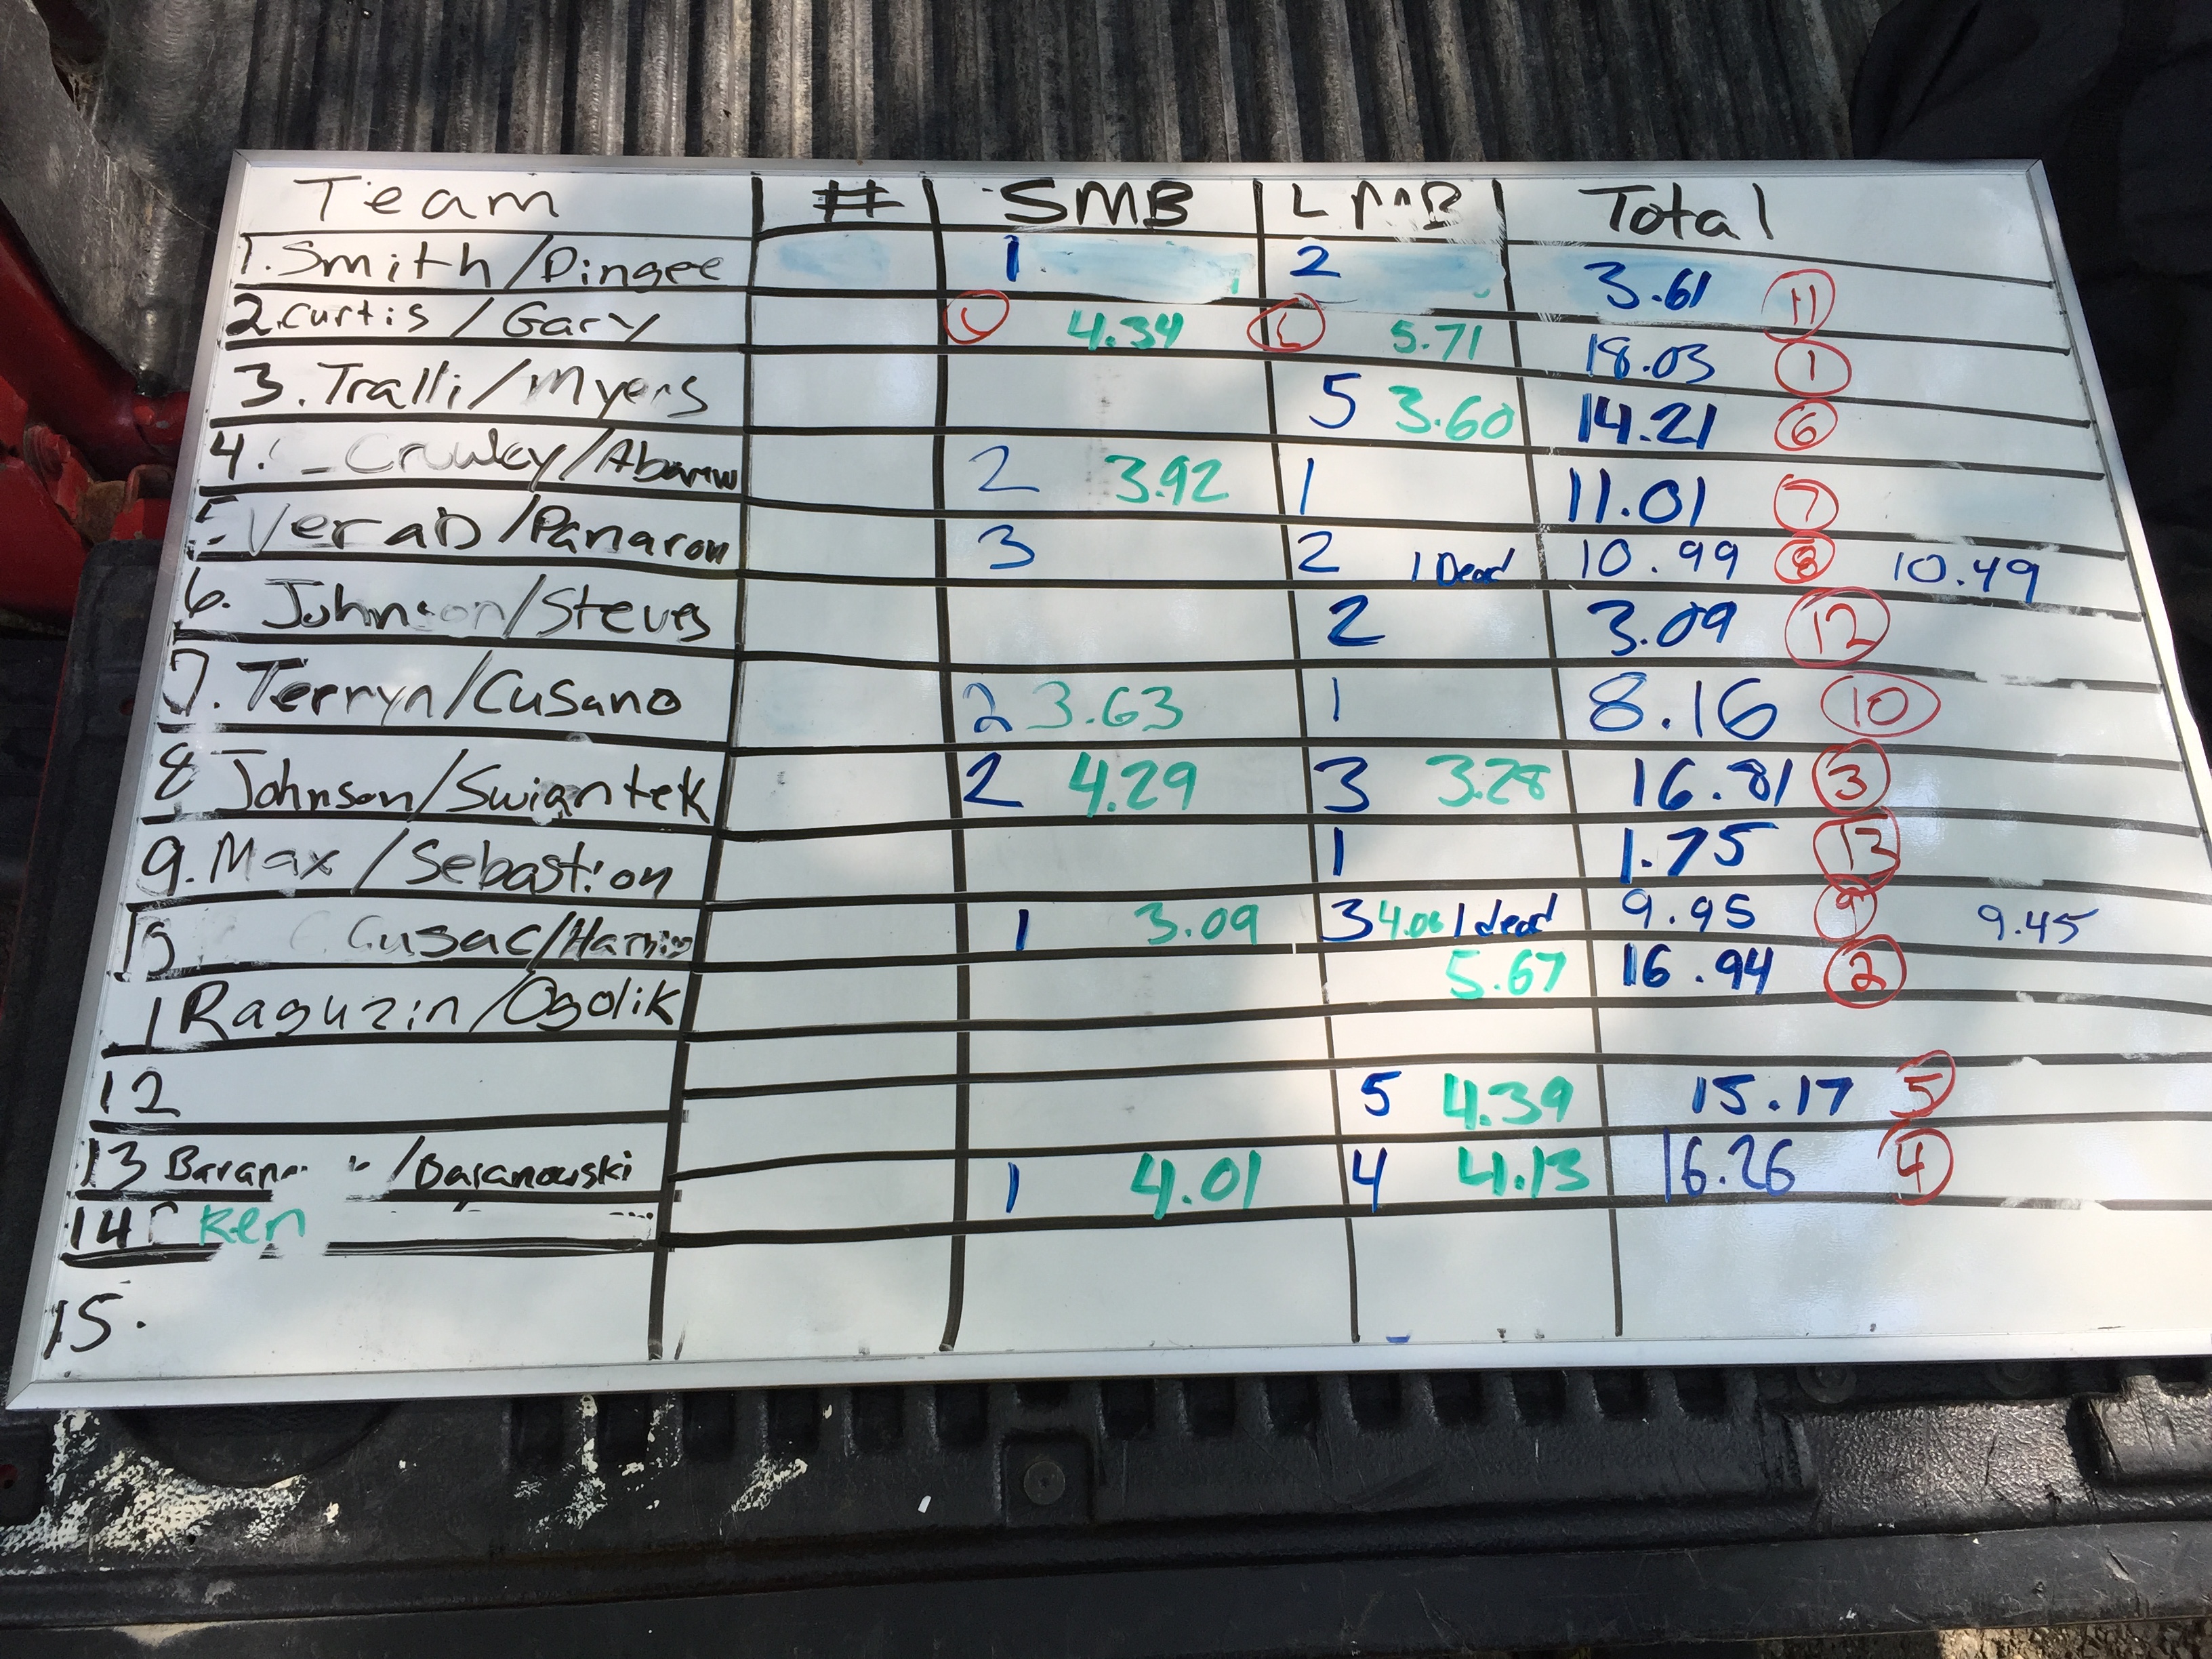 Team # SMB LMB Total
1. Smith/Dingee 1 2 3.61 11
2. Curtis/Gary 4.34 L 5.71 18.03 1
3. Tralli/Myers 5 3.60 14.21 6
4. Crowley/ 2 3.92 1 11.01 7
5 /Panaron 3 2 1 Dead 10.99 8 10.49
6. Johnson/Steves 2 3.09 12
7. Terryn/Cusano 2 3.63 1 8.16 10
8 Johnson/Swiantek 2 4.29 3 3.28 16.81 3
9. Max/Sebastion 1 1.75 13
Cusac/ 1 3.09 3 4.06 1 dead 9.95 9 9.45
1 Raguzin/Ogolik 5.67 16.94 2
12 5 4.39 15.17 5
13 /Baranowski 1 4.01 4 4.13 16.26 4
14 Ken
15.